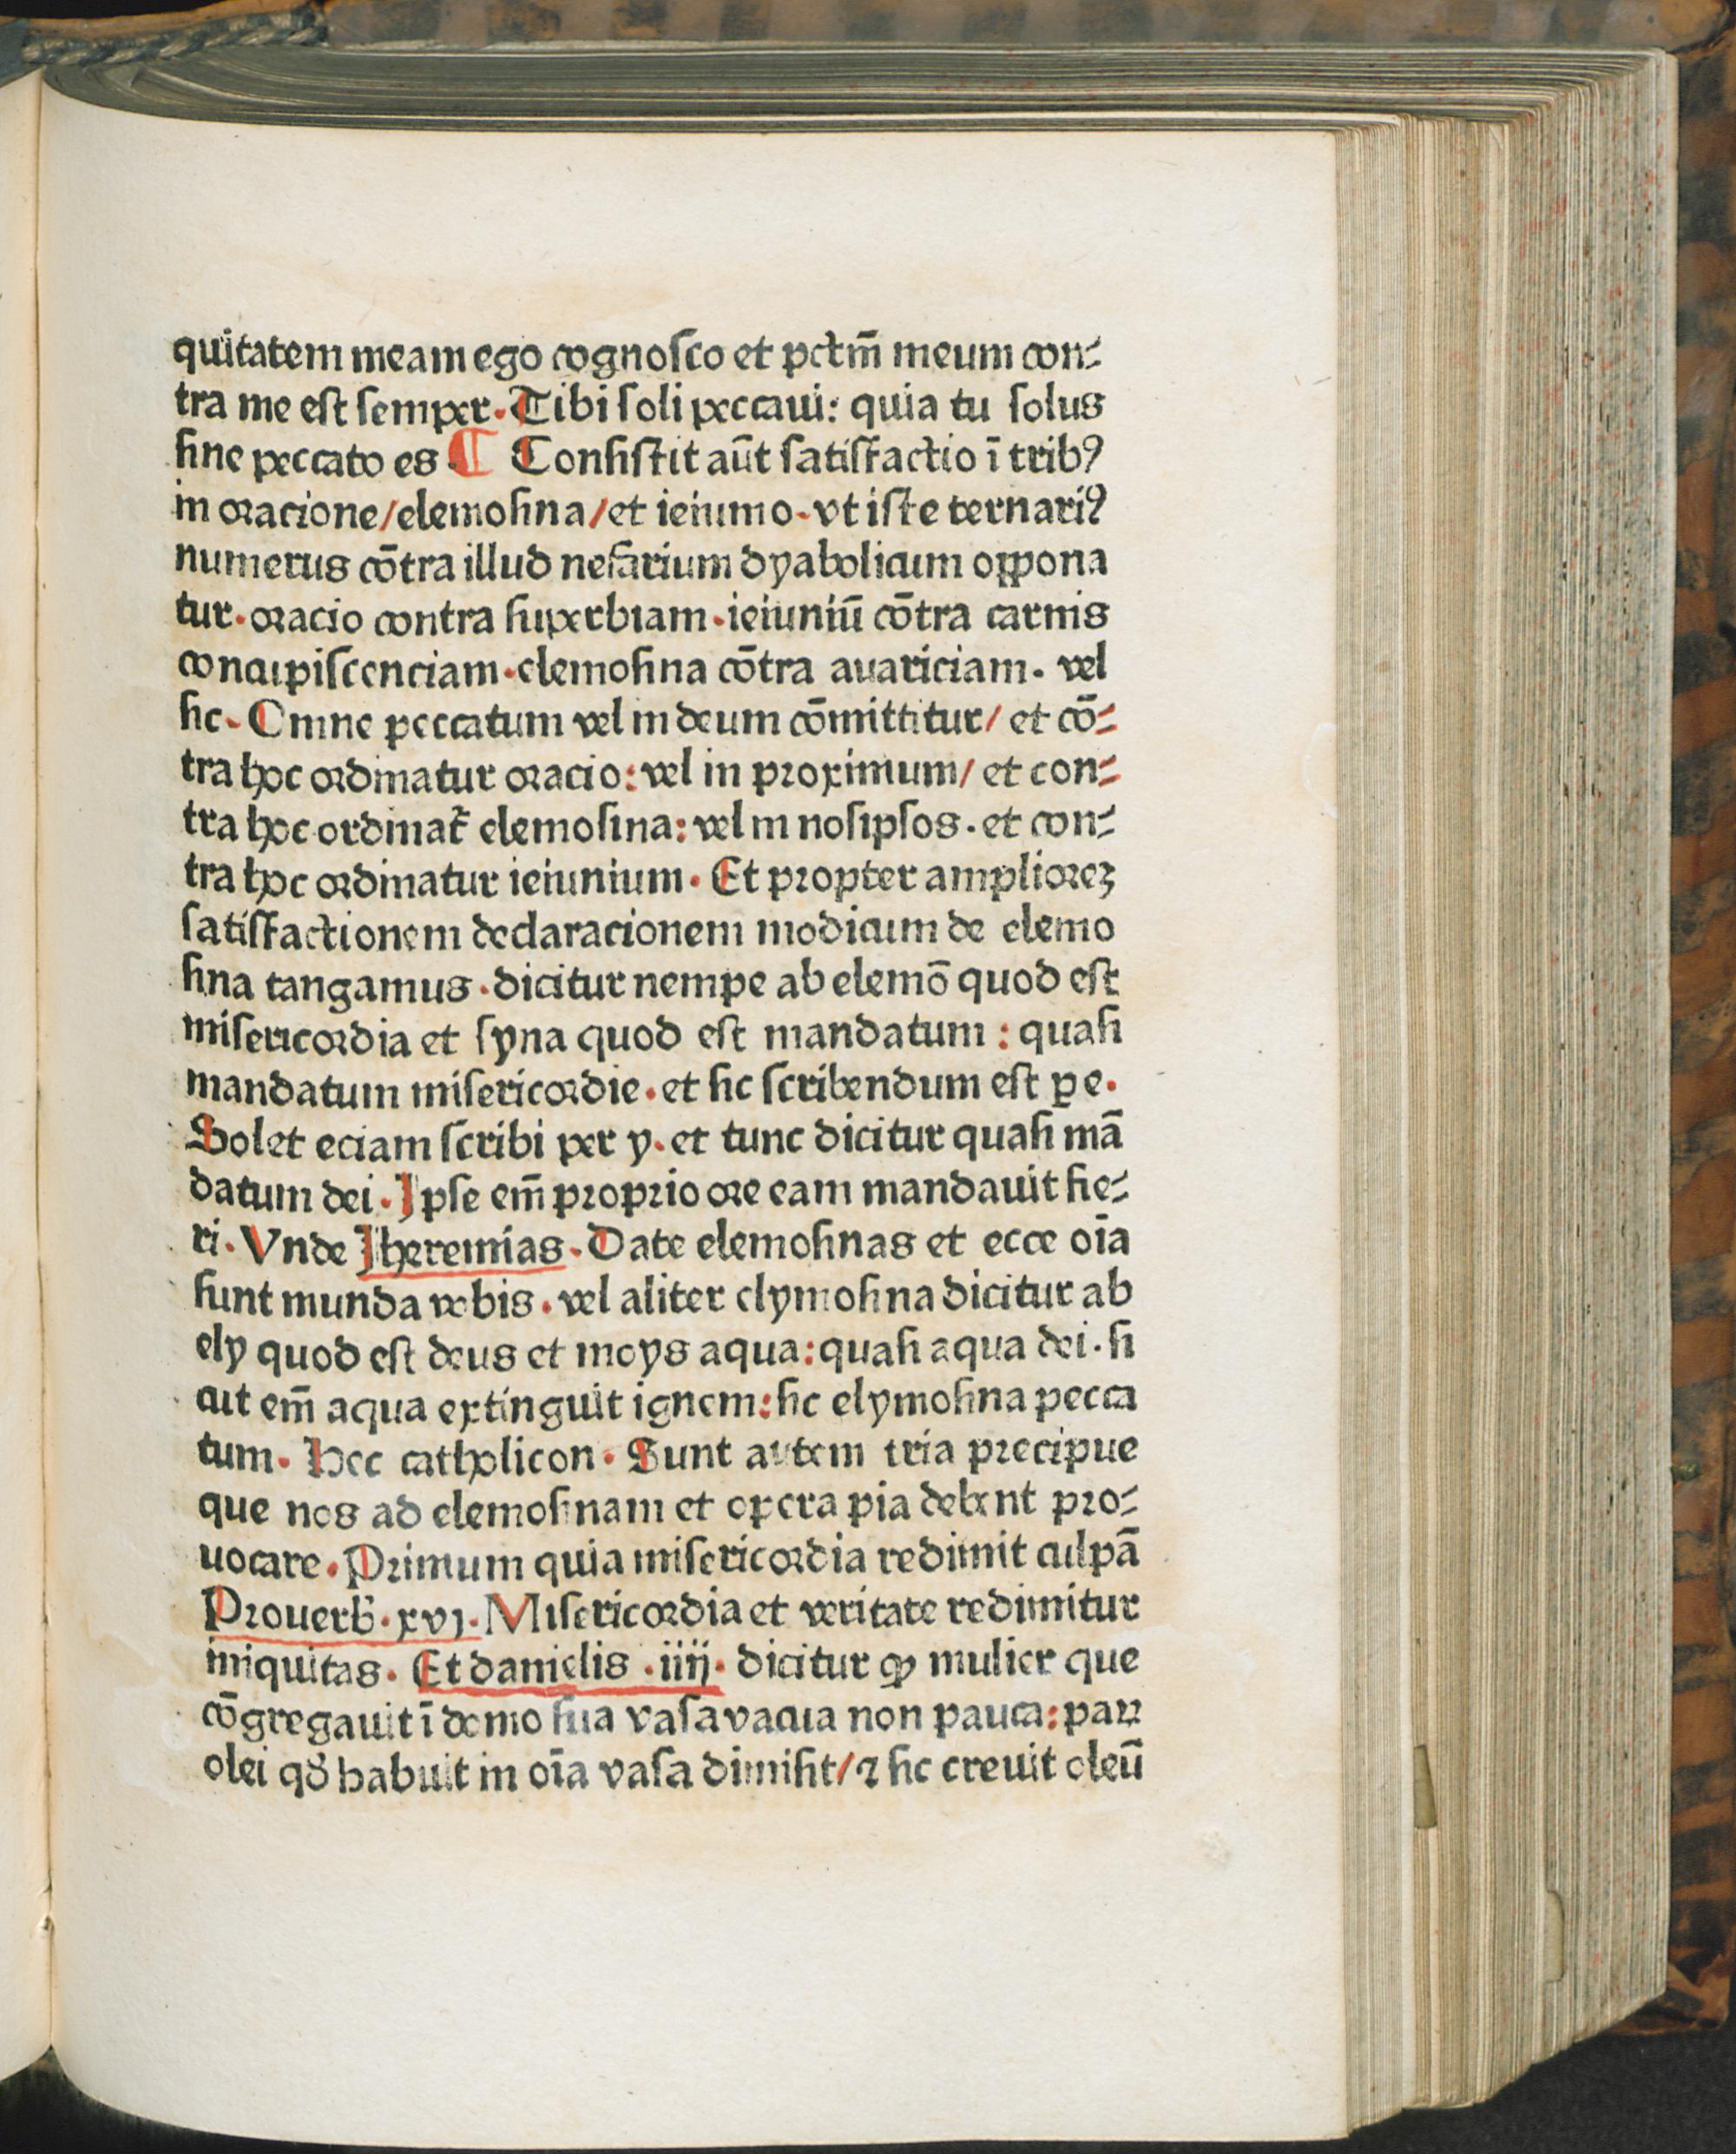 quitatem meam ego cognoſco et pctm̄ meum con⸗
tra me eſt ſemper. Tibi ſoli peccaui: quia tu ſolus
ſine peccato es. ¶ Conſiſtit aūt ſatiſfactio ī tribꝰ
in oracione/elemoſina/et ieiunio. vt iſte ternariꝰ
numerus cōtra illud nefarium dyabolicum oppona
tur. oracio contra ſuperbiam. ieiuniū cōtra carnis
concupiſcenciam. elemoſina cōtra auariciam. vel
ſic. Omne peccatum vel in deum cōmittitur/ et cō⸗
tra hoc ordinatur oracio: vel in proximum/ et con⸗
tra hoc ordinat᷑ elemoſina: vel in noſipſos. et con⸗
tra hoc ordinatur ieiunium. Et propter ampliorez
ſatiſfactionem declaracionem modicum de elemo
ſina tangamus. dicitur nempe ab elemō quod eſt
miſericordia et ſyna quod eſt mandatum : quaſi
mandatum miſericordie. et ſic ſcribendum eſt ꝑ e.
Solet eciam ſcribi per y. et tunc dicitur quaſi mā
datum dei. Ipſe em̄ proprio ore eam mandauit fie⸗
ri. Vnde Jheremias. Date elemoſinas et ecce oīa
ſunt munda vobis. vel aliter elymoſina dicitur ab
ely quod eſt deus et moys aqua: quaſi aqua dei. ſi
cut em̄ aqua extinguit ignem: ſic elymoſina pecca
tum. Hec catholicon. Sunt autem tria precipue
que nos ad elemoſinam et opera pia debent pro⸗
uocare. Primum quia miſericordia redimit culpā
Prouerb̄. xvj. Miſericordia et veritate redimitur
iniquitas. Et danielis .iiij. dicitur ꝙ mulier que
cōgregauit ī domo ſua vaſa vacua non pauca: paꝝ
olei qd̄ habuit in oīa vaſa dimiſit/ ⁊ ſic creuit oleū